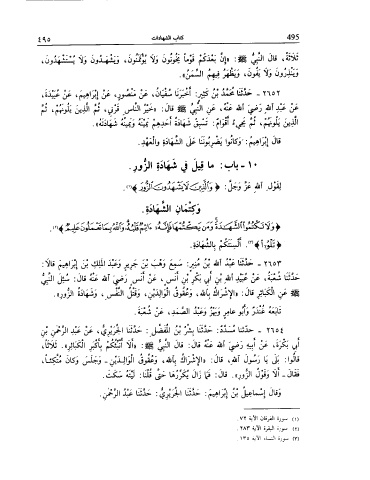 495 كتاب الشهادات ٤٩٥
ثَلَاثَةً، قَالَ النَّبِيُّ ﷺ: «إِنَّ بَعْدَكُمْ قَوْماً يَخُونُونَ وَلَا يُؤْتَمَنُونَ، وَيَشْهَدُونَ وَلَا يُسْتَشْهَدُونَ،
وَيَنْذِرُونَ وَلَا يَفُونَ، وَيَظْهَرُ فِيهِمُ السِّمَنُ».
٢٦٥٢ - حَدَّثَنَا مُحَمَّدُ بْنُ كَثِيرٍ: أَخْبَرَنَا سُفْيَانُ، عَنْ مَنْصُورٍ، عَنْ إِبْرَاهِيمَ، عَنْ عَبِيدَةَ،
عَنْ عَبْدِ اللهِ رَضِيَ اللهُ عَنْهُ، عَنِ النَّبِيِّ ﷺ قَالَ: «خَيْرُ النَّاسِ قَرْنِي، ثُمَّ الَّذِينَ يَلُونَهُمْ، ثُمَّ
الَّذِينَ يَلُونَهُمْ، ثُمَّ يَجِيءُ أَقْوَامٌ: تَسْبِقُ شَهَادَةُ أَحَدِهِمْ يَمِينَهُ وَيَمِينُهُ شَهَادَتَهُ».
قَالَ إِبْرَاهِيمُ: وَكَانُوا يَضْرِبُونَنَا عَلَى الشَّهَادَةِ وَالْعَهْدِ.
١٠ - باب: ما قِيلَ فِي شَهَادَةِ الزُّورِ.
لِقَوْلِ اللهِ عَزَّ وَجَلَّ: ﴿وَالَّذِينَ لَا يَشْهَدُونَ الزُّورَ﴾(١).
وَكِتْمَانِ الشَّهَادَةِ.
﴿وَلَا تَكْتُمُوا الشَّهَادَةَ وَمَنْ يَكْتُمْهَا فَإِنَّهُ آثِمٌ قَلْبُهُ وَاللهُ بِمَا تَعْمَلُونَ عَلِيمٌ﴾(٢).
﴿تَلْوُوا﴾(٣) أَلْسِنَتَكُمْ بِالشَّهَادَةِ.
٢٦٥٣ - حَدَّثَنَا عَبْدُ اللهِ بْنُ مُنِيرٍ: سَمِعَ وَهْبَ بْنَ جَرِيرٍ وَعَبْدَ الْمَلِكِ بْنَ إِبْرَاهِيمَ قَالَا:
حَدَّثَنَا شُعْبَةُ، عَنْ عُبَيْدِ اللهِ بْنِ أَبِي بَكْرِ بْنِ أَنَسٍ، عَنْ أَنَسٍ رَضِيَ اللهُ عَنْهُ قَالَ: سُئِلَ النَّبِيُّ
ﷺ عَنِ الْكَبَائِرِ قَالَ: «الْإِشْرَاكُ بِاللهِ، وَعُقُوقُ الْوَالِدَيْنِ، وَقَتْلُ النَّفْسِ، وَشَهَادَةُ الزُّورِ».
تَابَعَهُ غُنْدَرٌ وَأَبُو عَامِرٍ وَبَهْزٌ وَعَبْدُ الصَّمَدِ، عَنْ شُعْبَةَ.
٢٦٥٤ - حَدَّثَنَا مُسَدَّدٌ: حَدَّثَنَا بِشْرُ بْنُ الْمُفَضَّلِ: حَدَّثَنَا الْجُرَيْرِيُّ، عَنْ عَبْدِ الرَّحْمٰنِ بْنِ
أَبِي بَكْرَةَ، عَنْ أَبِيهِ رَضِيَ اللهُ عَنْهُ قَالَ: قَالَ النَّبِيُّ ﷺ: «أَلَا أُنَبِّئُكُمْ بِأَكْبَرِ الْكَبَائِرِ». ثَلَاثاً،
قَالُوا: بَلَى يَا رَسُولَ اللهِ، قَالَ: «الْإِشْرَاكُ بِاللهِ، وَعُقُوقُ الْوَالِدَيْنِ - وَجَلَسَ وَكَانَ مُتَّكِئاً،
فَقَالَ - أَلَا وَقَوْلُ الزُّورِ». قَالَ: فَمَا زَالَ يُكَرِّرُهَا حَتَّى قُلْنَا: لَيْتَهُ سَكَتَ.
وَقَالَ إِسْمَاعِيلُ بْنُ إِبْرَاهِيمَ: حَدَّثَنَا الْجُرَيْرِيُّ: حَدَّثَنَا عَبْدُ الرَّحْمٰنِ.
(١) سورة الفرقان الآية ٧٢.
(٢) سورة البقرة الآية ٢٨٣.
(٣) سورة النساء الآية ١٣٥.